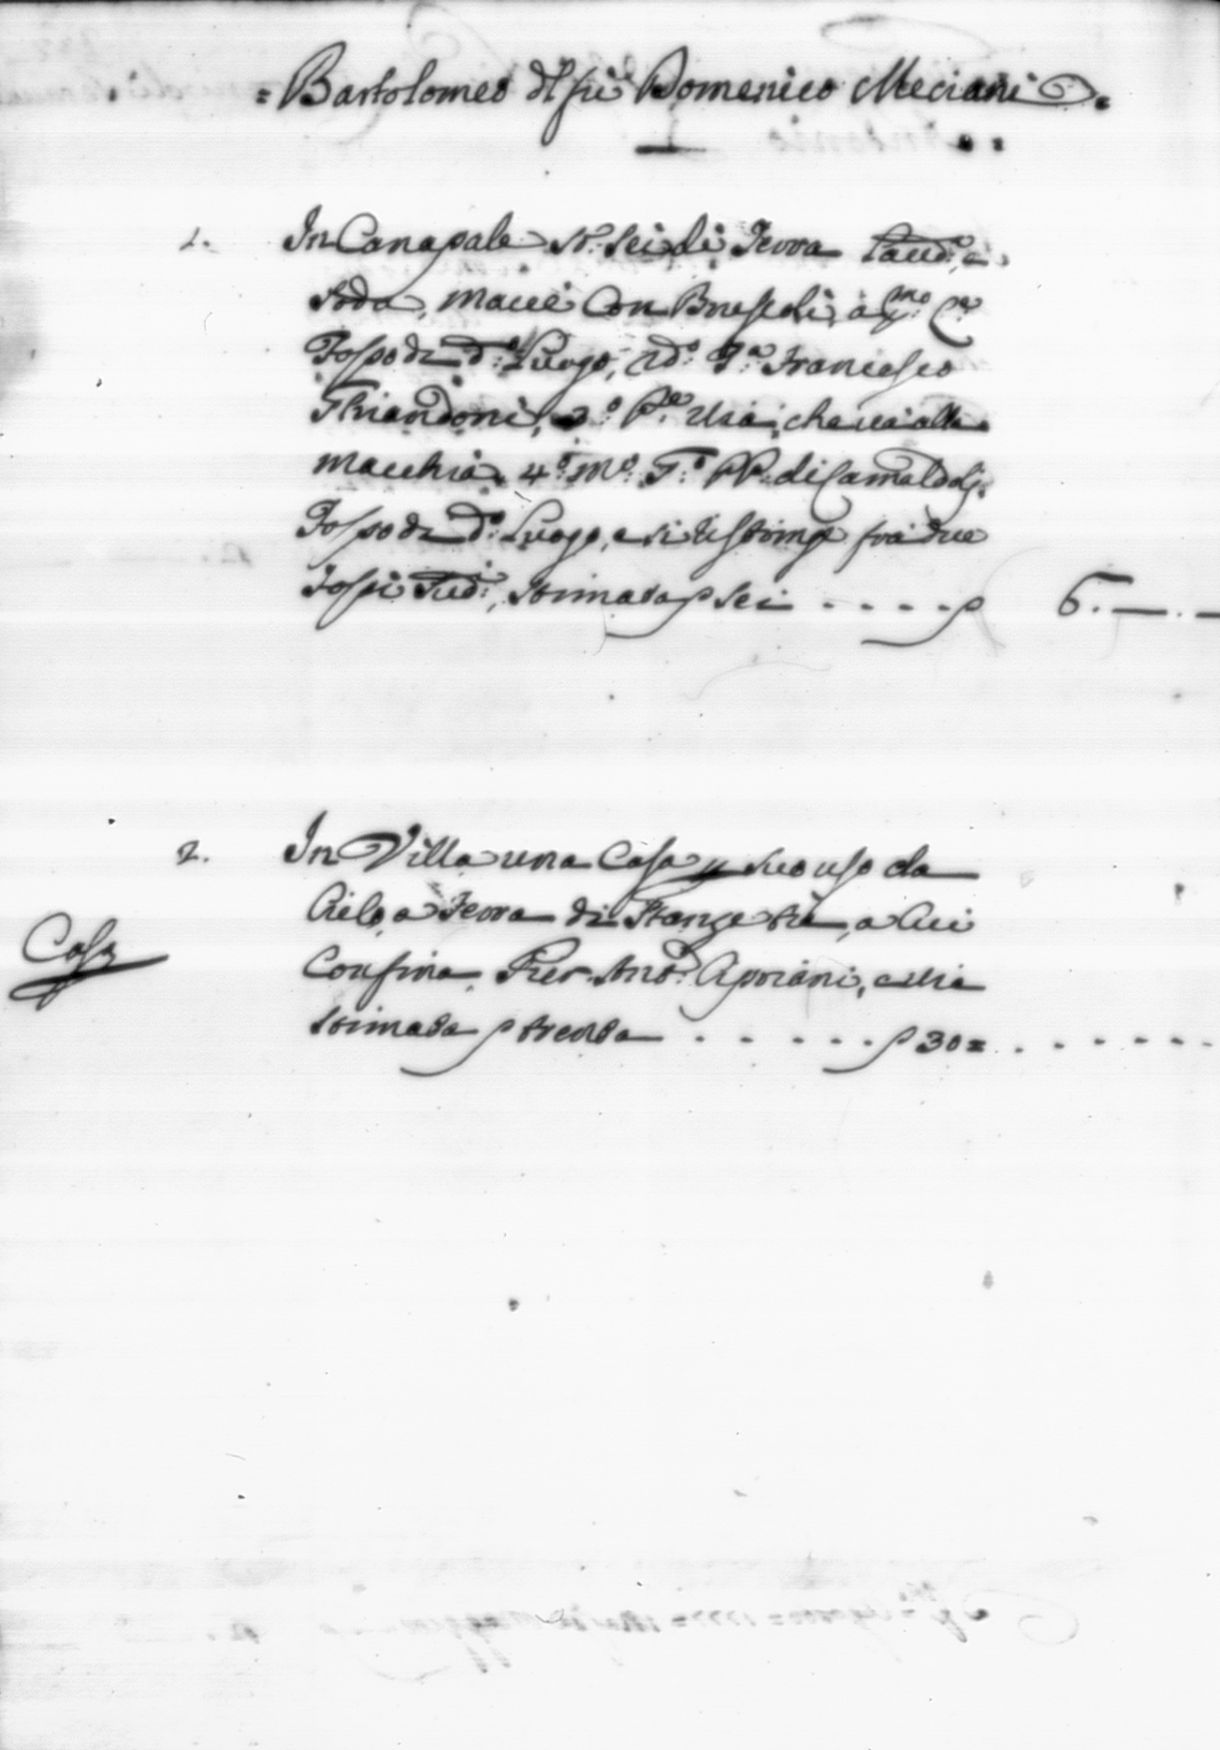 = Bartolomeo dl fù Domenico Meciani =
1. In Canapale st. sei di Terra Laud.a, e
soda, Macch. con Bruscoli, a p.mo C.e
Fosso di d.o Luogo, 2.do T.a Francesco
Ghiandoni, 3.o P.e Via, che va alla
Macchia, 4.o M.o T.o PP. di Camaldoli
Fosso di d.o Luogo, e si ristringe frà due
Fossi Sud.i, stimata p sei . . . . p 6. — . —
2. In Villa una Casa p suo uso da
Cielo a Terra di Stanze trè, a cui
Confina Pier Ant.o Apriani, e Via
stimata p trenta . . . . . . p 30 = . . . . . .
Casa